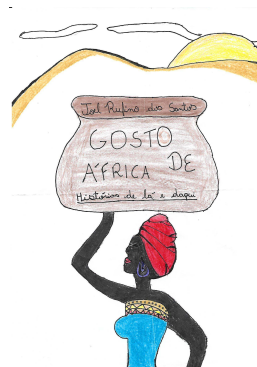 Joel Rufino dos Santos
GOSTO
DE
ÁFRICA
Histórias de lá e daqui